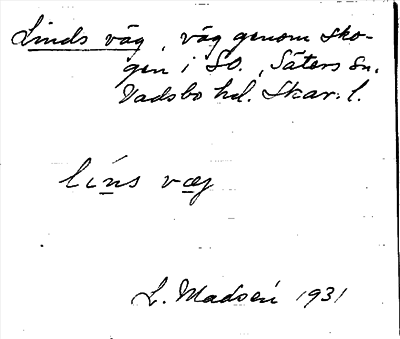 Linds väg, väg genom sko-
gen i SO., Säters sn,
Vadsbo hd. Skar. l.
líns væg
L. Madsén 1931